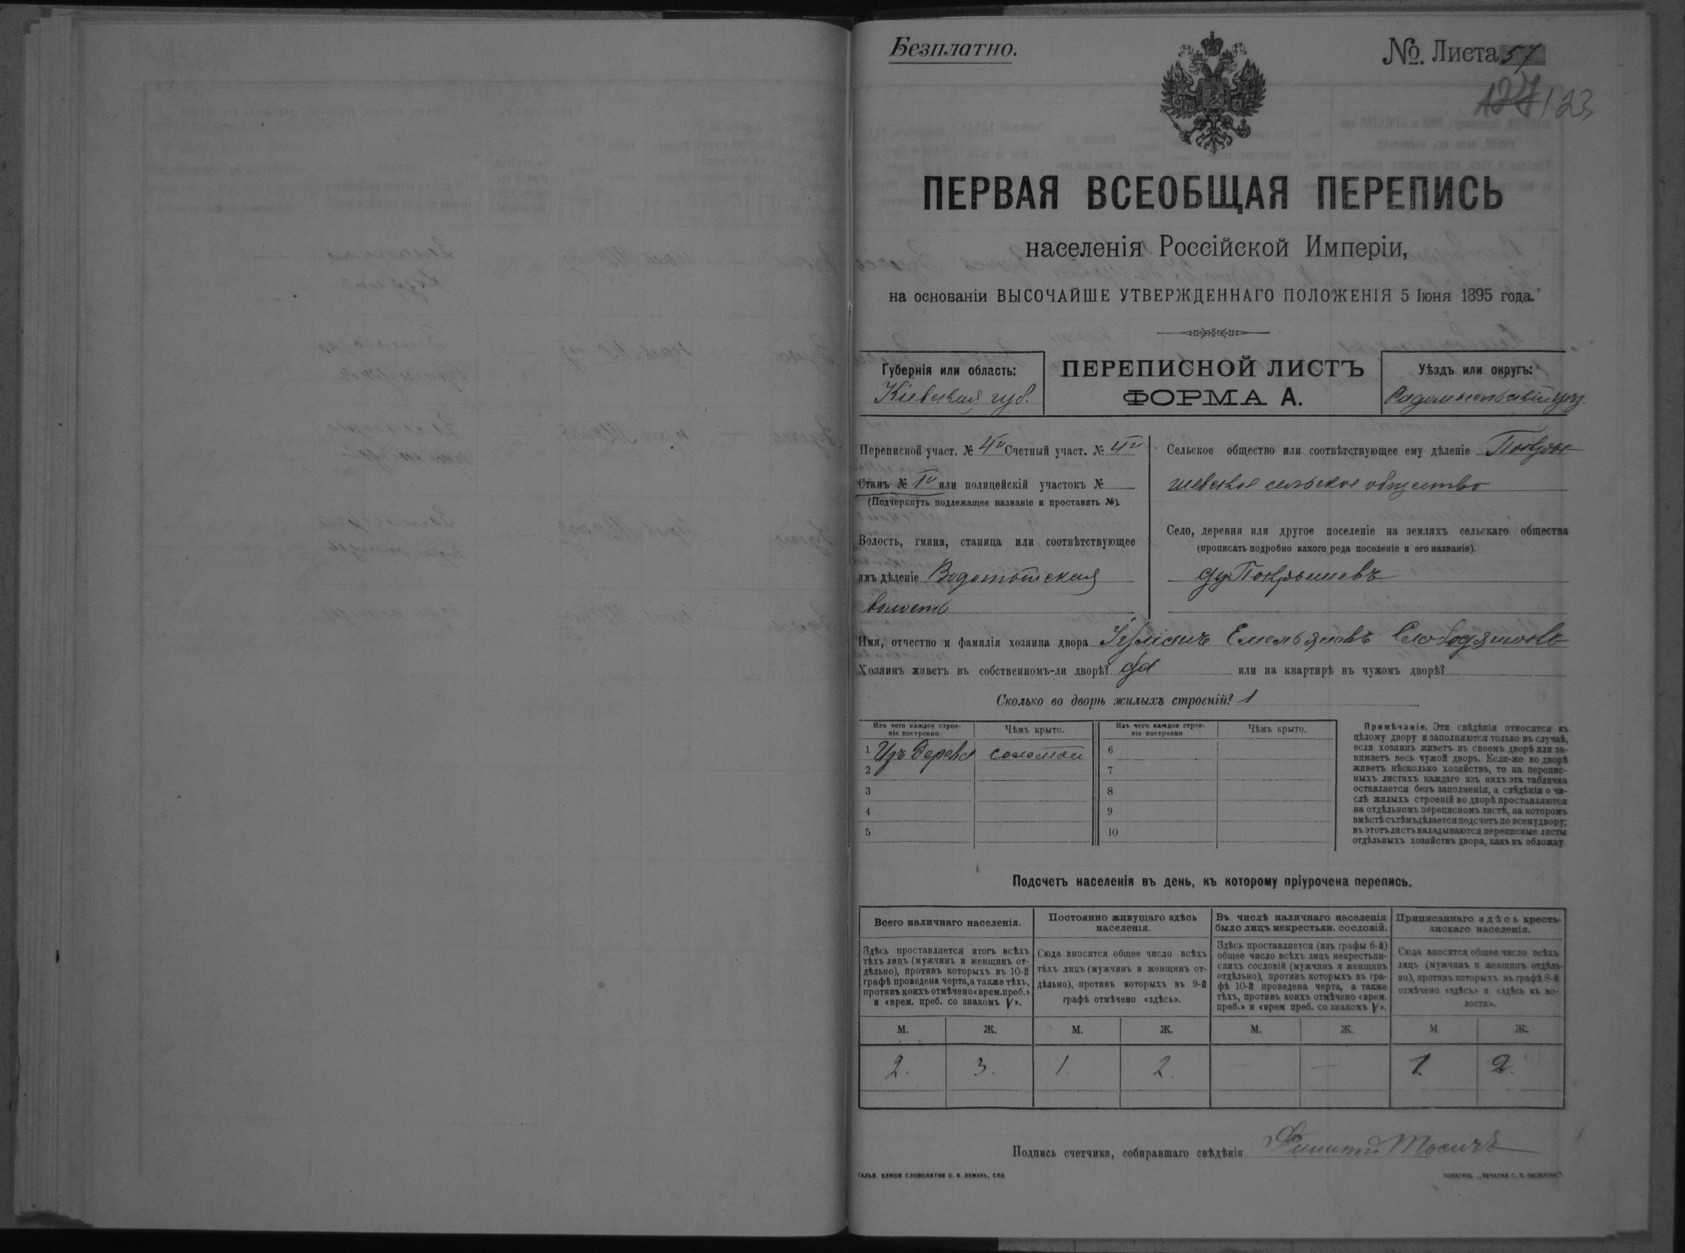 Безплатно.
№. Листа 57
127 123
ПЕРВАЯ ВСЕОБЩАЯ ПЕРЕПИСЬ
населенія Россійской Имперіи,
на основаніи ВЫСОЧАЙШЕ УТВЕРЖДЕННАГО ПОЛОЖЕНІЯ 5 Іюня 1895 года.
Губернія или область:
Кіевская губ.
ПЕРЕПИСНОЙ ЛИСТЪ
ФОРМА А.
Уѣздъ или округъ:
Переписной участ. № 4й Счетный участ. № 4й
Станъ № 1й или полицейскій участокъ №
(Подчеркнуть подлежащее названіе и проставить №).
Волость, гмина, станица или соотвѣтствующее
имъ дѣленіе Водотыйская
волость
Сельское общество или соотвѣтствующее ему дѣленіе Покры-
шевское сельское общество
Село, деревня или другое поселеніе на земляхъ сельскаго общества
(прописать подробно какого рода поселеніе и его названіе)
д. Покрышевъ
Имя, отчество и фамилія хозяина двора Емельяновъ
Хозяинъ живетъ въ собственномъ-ли дворѣ? да или на квартирѣ въ чужомъ дворѣ?
Сколько во дворѣ жилыхъ строеній? 1
Изъ чего каждое строе-
ніе построено.
Чѣмъ крыто.
Изъ чего каждое строе-
ніе построено.
Чѣмъ крыто.
1 Изъ дерева соломой 6
2 7
3 8
4 9
5 10
Примѣчаніе. Эти свѣдѣнія относятся къ
цѣлому двору и заполняются только въ случаѣ,
если хозяинъ живетъ въ своемъ дворѣ или за-
нимаетъ весь чужой дворъ. Если-же во дворѣ
живетъ нѣсколько хозяйствъ, то на перепис-
ныхъ листахъ каждаго изъ нихъ эта табличка
оставляется безъ заполненія, а свѣдѣнія о чи-
слѣ жилыхъ строеній во дворѣ проставляются
на отдѣльномъ переписномъ листѣ, на которомъ
вмѣстѣ съ тѣмъ дѣлается подсчетъ по всему двору;
въ этотъ листъ вкладываются переписные листы
отдѣльныхъ хозяйствъ двора, какъ въ обложку.
Подсчетъ населенія въ день, къ которому пріурочена перепись.
Всего наличнаго населенія.
Здѣсь проставляется итогъ всѣхъ
тѣхъ лицъ (мужчинъ и женщинъ от-
дѣльно), противъ которыхъ въ 10-й
графѣ проведена черта, а также тѣхъ,
противъ коихъ отмѣчено «врем. преб.»
и «врем. преб. со знакомъ V».
Постоянно живущаго здѣсь
населенія.
Сюда вносится общее число всѣхъ
тѣхъ лицъ (мужчинъ и женщинъ от-
дѣльно), противъ которыхъ въ 9-й
графѣ отмѣчено «здѣсь».
Въ числѣ наличнаго населенія
было лицъ некрестьян. сословій.
Здѣсь проставляется (изъ графы 6-й)
общее число всѣхъ лицъ некрестьян-
скихъ сословій (мужчинъ и женщинъ
отдѣльно), противъ которыхъ въ гра-
фѣ 10-й проведена черта, а также
тѣхъ, противъ коихъ отмѣчено «врем.
преб.» и «врем преб. со знакомъ V».
Приписаннаго здѣсь кресть-
янскаго населенія.
Сюда вносится общее число всѣхъ
лицъ (мужчинъ и женщинъ отдѣль-
но), противъ которыхъ въ графѣ 8-й
отмѣчено «здѣсь» и «здѣсь въ во-
лости».
М. Ж. М. Ж. М. Ж. М. Ж.
2. 3. 1. 2. — — 1. 2.
Подпись счетчика, собиравшаго свѣдѣнія